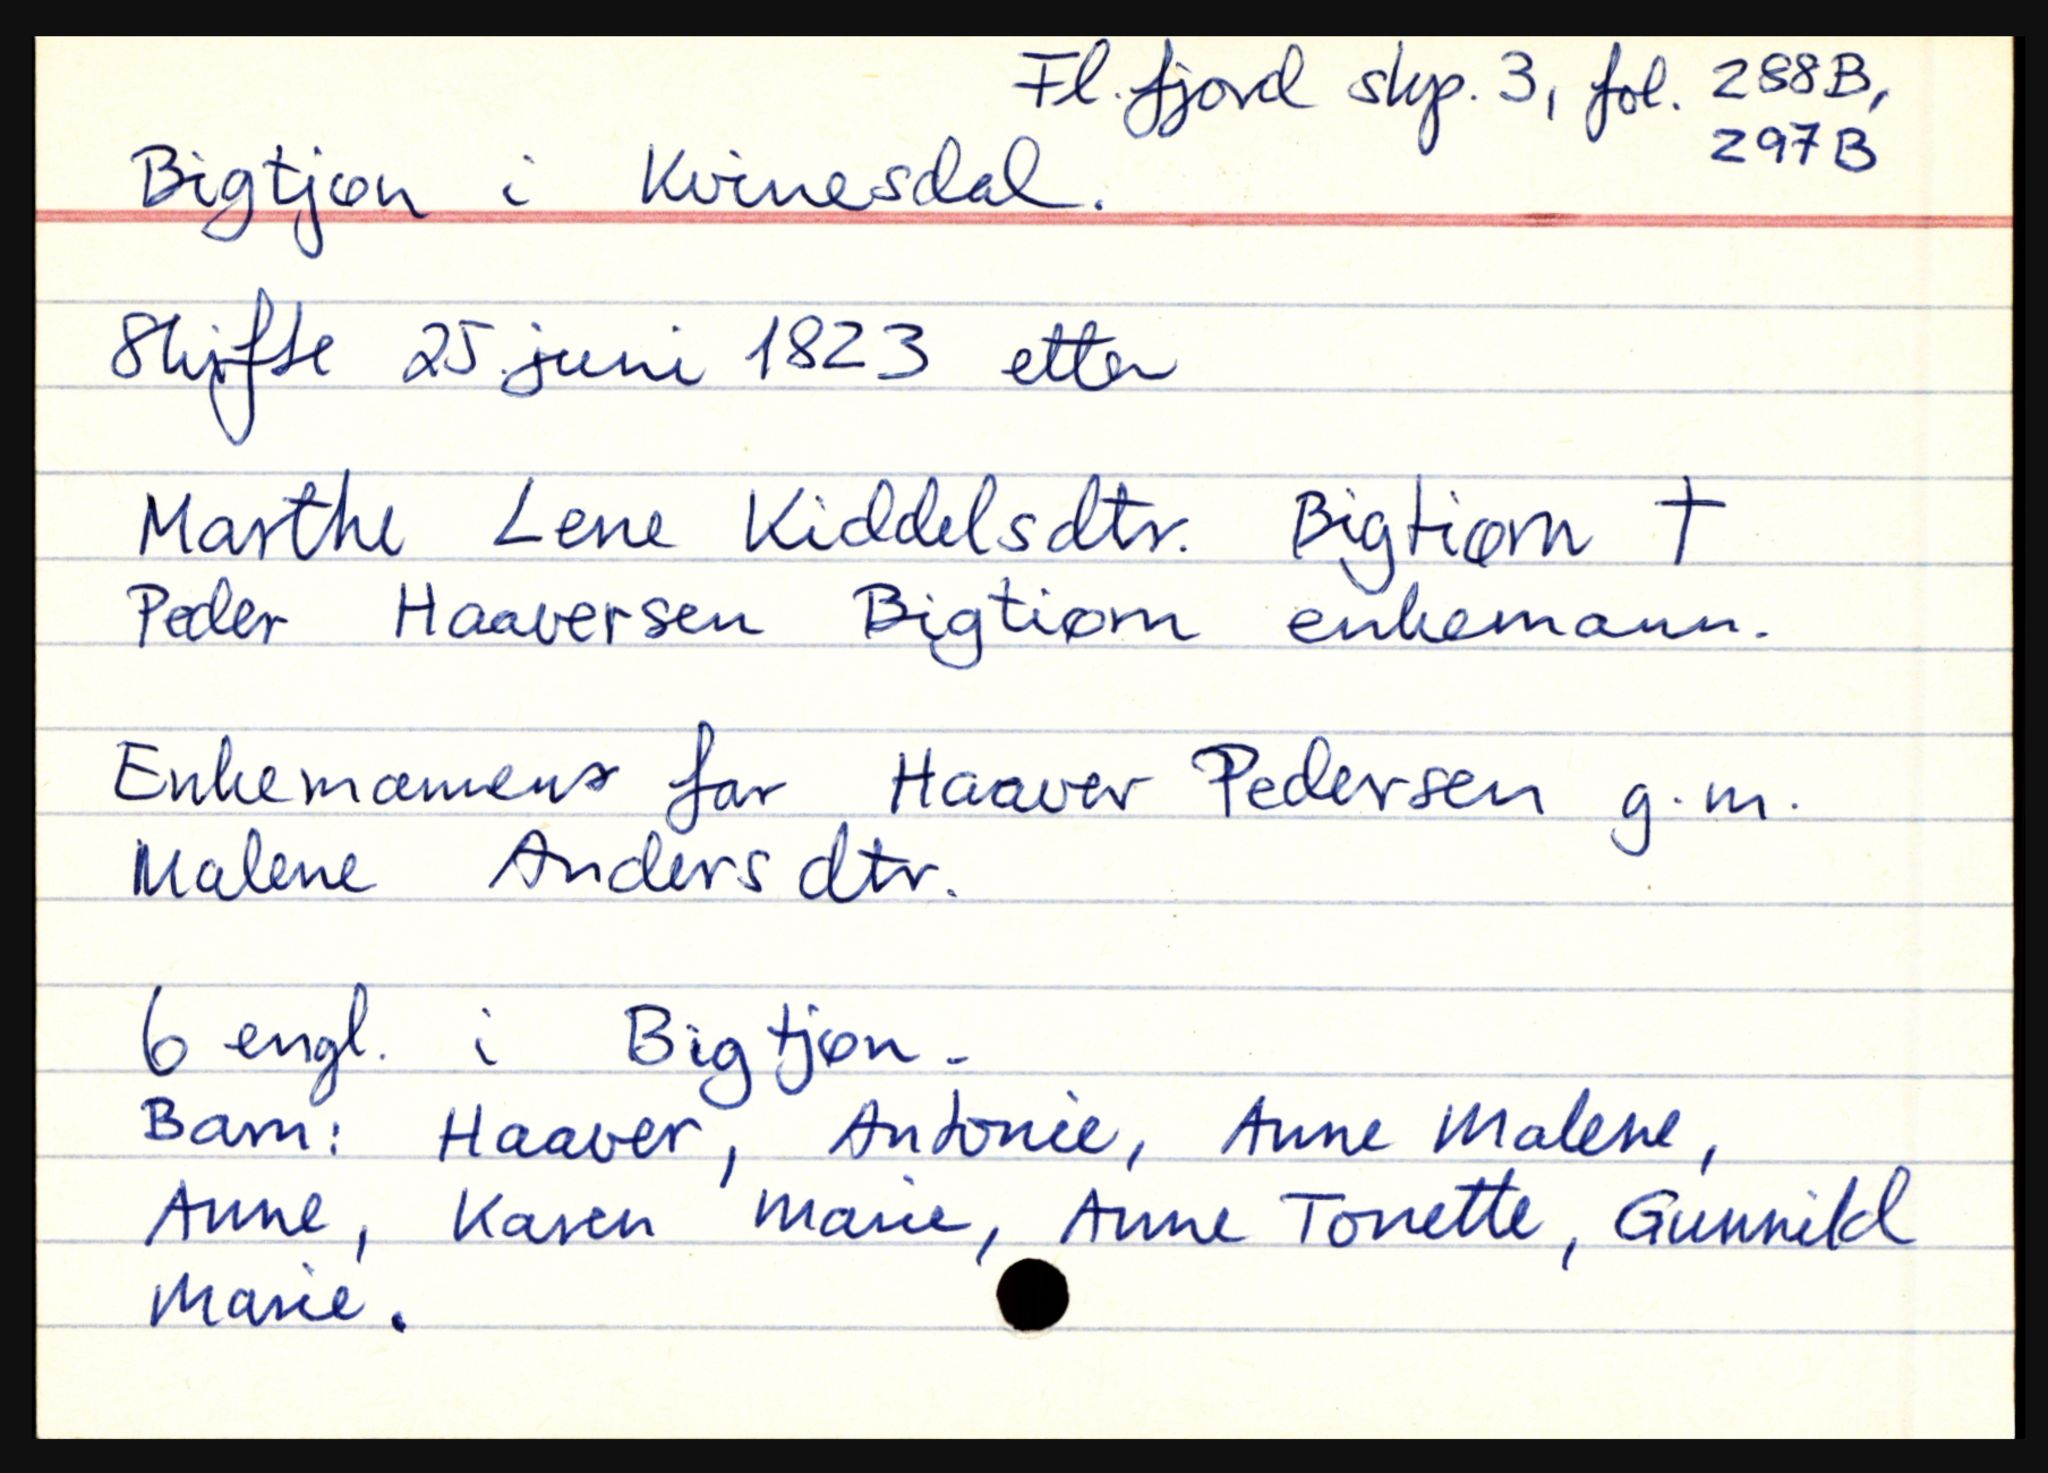 Fl.fjord skp. 3, fol. 288B,
297B
Bigtjøn i Kvinesdal.
Skifte 25. juni 1823 etter
Marthe Lene Kiddelsdtr. Bigtiørn †
Peder Haaversen Bigtiørn enkemann.
Enkemannens far Haaver Pedersen g.m.
Malene Andersdtr.
6 engl. i Bigtjøn -
Barn: Haaver, Antonie, Anne Malene,
Anne, Karen Marie, Anne Tonette, Gunnild
Marie.